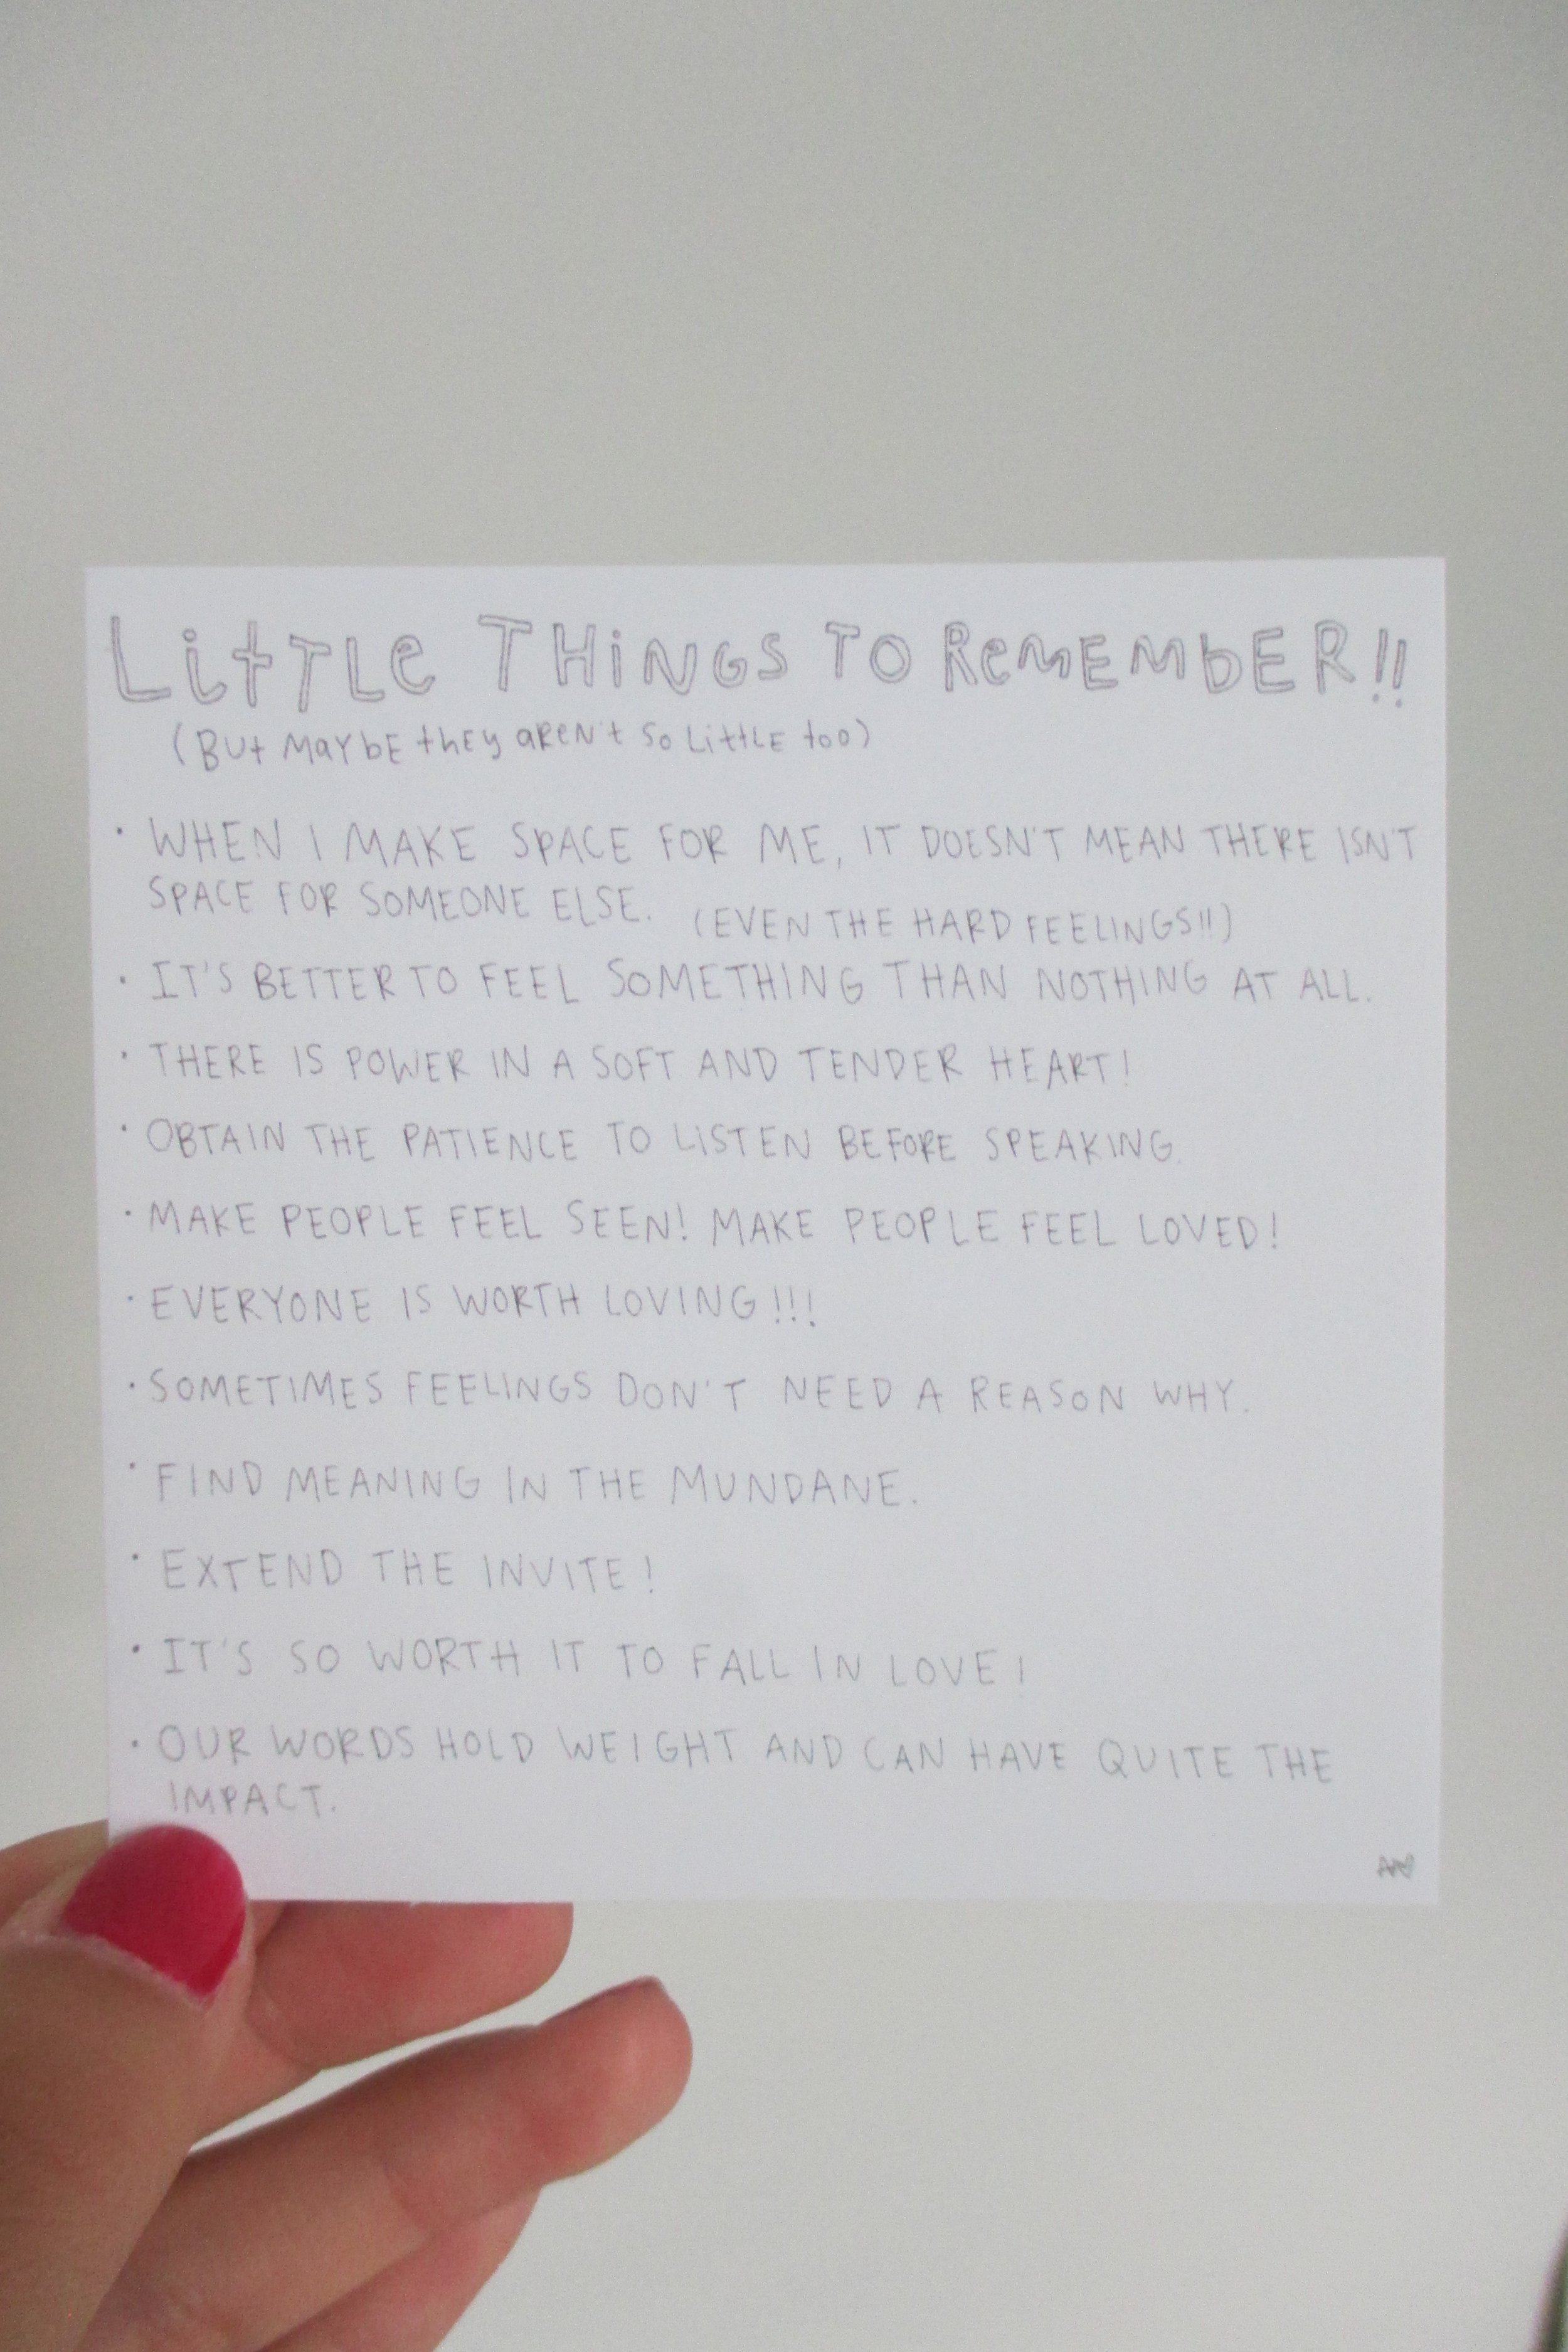 LittLe THiNGS TO ReMEMbER!!
(But MaYbE thEy aREN't So LittLE too)
· WHEN I MAKE SPACE FOR ME, IT DOESN'T MEAN THERE ISN'T
SPACE FOR SOMEONE ELSE.
(EVEN THE HARD FEELINGS!!)
· IT'S BETTER TO FEEL SOMETHING THAN NOTHING AT ALL.
· THERE IS POWER IN A SOFT AND TENDER HEART!
· OBTAIN THE PATIENCE TO LISTEN BEFORE SPEAKING.
· MAKE PEOPLE FEEL SEEN! MAKE PEOPLE FEEL LOVED!
· EVERYONE IS WORTH LOVING!!!
· SOMETIMES FEELINGS DON'T NEED A REASON WHY.
· FIND MEANING IN THE MUNDANE.
· EXTEND THE INVITE!
· IT'S SO WORTH IT TO FALL IN LOVE!
· OUR WORDS HOLD WEIGHT AND CAN HAVE QUITE THE
IMPACT.